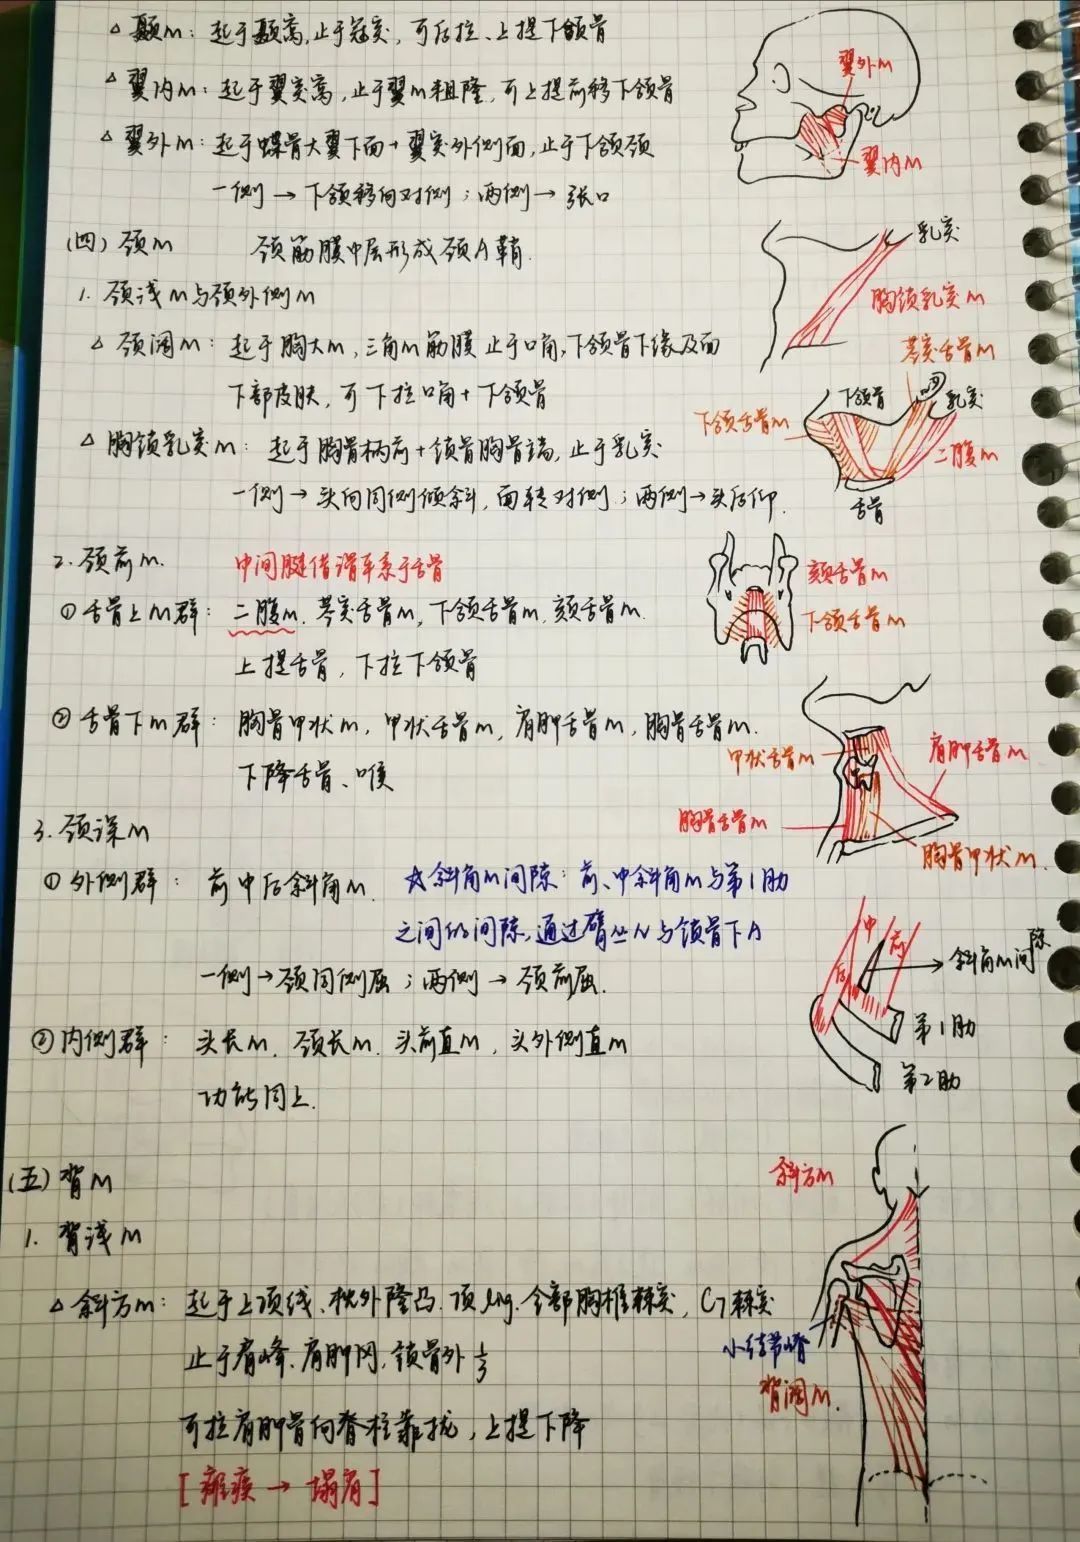 △ 颞m：起于颞窝,止于冠突，可后拉、上提下颌骨
△ 翼内m：起于翼突窝，止于翼m粗隆，可上提前移下颌骨
△ 翼外m：起于蝶骨大翼下面+翼突外侧面,止于下颌颈
一侧→下颌移向对侧；两侧→张口
翼外m
翼内m
(四) 颈m 颈筋膜中层形成颈A鞘.
1. 颈浅m与颈外侧m
△ 颈阔m：起于胸大m,三角m筋膜 止于口角,下颌骨下缘及面
下部皮肤，可下拉口角+下颌骨
△ 胸锁乳突m：起于胸骨柄前+锁骨胸骨端,止于乳突
一侧→头向同侧倾斜,面转对侧；两侧→头后仰.
乳突
胸锁乳突m
茎突舌骨m
下颌骨
乳突
下颌舌骨m
二腹m
舌骨
2. 颈前m. 中间腱借滑车系于舌骨
① 舌骨上m群：二腹m. 茎突舌骨m, 下颌舌骨m. 颏舌骨m.
上提舌骨，下拉下颌骨
颏舌骨m
下颌舌骨m
② 舌骨下m群：胸骨甲状m, 甲状舌骨m, 肩胛舌骨m, 胸骨舌骨m.
下降舌骨、喉
甲状舌骨m
肩胛舌骨m
胸骨舌骨m
胸骨甲状m.
3. 颈深m
① 外侧群：前中后斜角m. ☆斜角m间隙：前、中斜角m与第1肋
之间的间隙,通过臂丛N与锁骨下A
一侧→颈同侧屈；两侧→颈前屈.
中
前
后
斜角m间隙
第1肋
第2肋
② 内侧群：头长m. 颈长m. 头前直m, 头外侧直m
功能同上.
(五) 背m
1. 背浅m
斜方m
△ 斜方m：起于上项线、枕外隆凸.项lig.全部胸椎棘突, C7棘突
止于肩峰.肩胛冈.锁骨外1/3
可拉肩胛骨向脊柱靠拢，上提下降
[瘫痪→塌肩]
小结节嵴
背阔m.